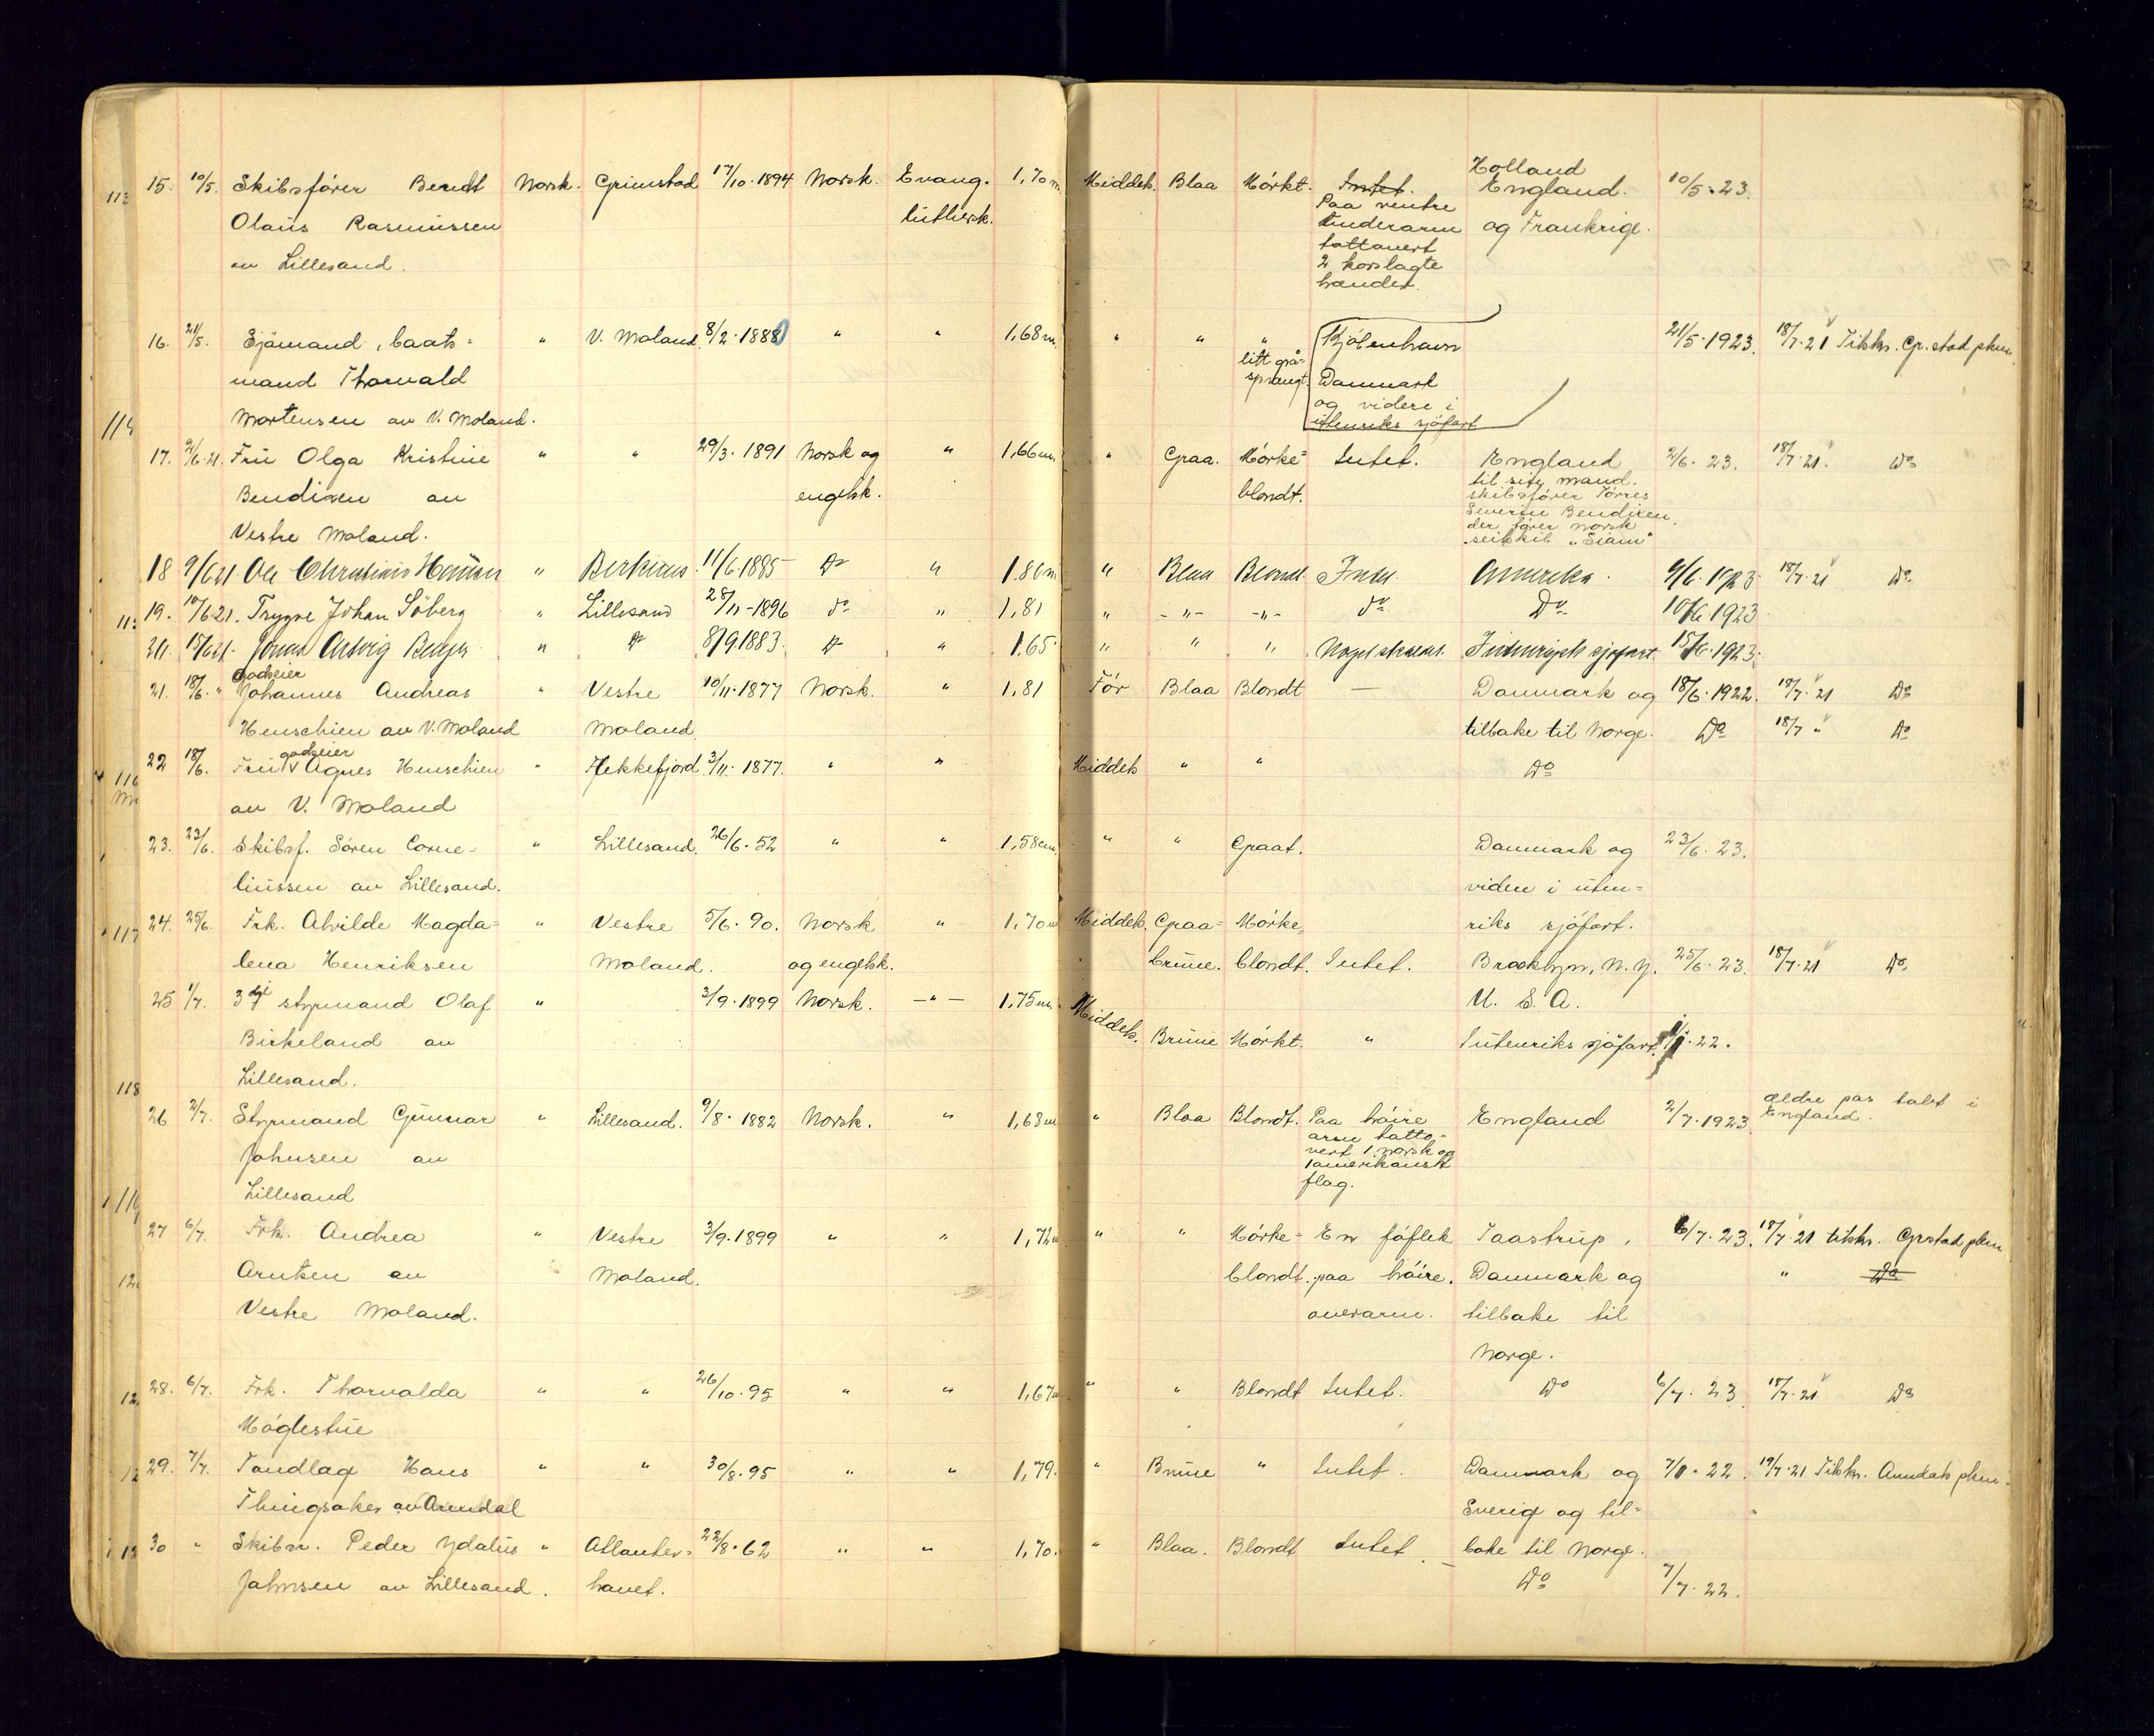 15. 10/5. Skibsfører Berndt Norsk. Grimstad 17/10.1894 Norsk. Evang. 1,70 m Middels. Blaa Mørkt. Intet. Holland England. 10/5.23.
Olaus Rasmussen luthersk. Paa venstre underarm og Frankrige.
av Lillesand. tattovert 2 korslagte hænder.
16. 21/5. Sjømand, baats= " V. Moland 8/2.1888 " " 1,68 m. " " " Kjøbenhavn 21/5.1923. 18/7.21 Tilskr. Gr.stad plkm
mand Thorvald litt grå= sprengt. Danmark
Mortensen av V. Moland. og videre i utenriks sjøfart
17. 2/6.21. Fru Olga Kristine " " 29/3.1891 Norsk og " 1,66 m. " Graa. Mørke= Intet. England 2/6.23. 18/7.21. Do
Bendixen av engelsk. blondt. til sin mand. skibsfører Tørres
Vestre Moland. Severin Bendixen, der fører norsk seilskib "Siam"
18 9/6 21. Ole " 11/6.1885 Do " 1.80 m " Blaa Blond. Intet. Amerika. 9/6.1923 18/7.21 Do
19. 10/6 21. Trygve Johan Söberg " Lillesand 28/11-1896 do " 1,81 " -"- -"- do Do 10/6 1923
20. 15/6 21. " Do 8/9.1883. Do " 1.65 " " " sjøfart. 15/6.1923.
21. 18/6. " Godseier Johannes Andreas " Vestre 10/11.1877 Norsk. " 1,81 Før Blaa Blondt — Danmark og 18/6.1922. 18/7.21 Do
Henschien av V. Moland Moland tilbake til Norge. Do 18/7 " Do
22 18/6. Fru godseier Agnes Henschien " Flekkefjord 3/11.1877. " " Middels " " Do
av V. Moland
23. 23/6. Skibsf. Sören Corne= " Lillesand. 26/6.52 " " 1,58 cm. " " Graat. Danmark og 23/6.23.
liussen av Lillesand. videre i uten=
24. 25/6. Frk. Alvilde Magda= " Vestre 5/6.90. Norsk " 1,70 m Middels. Graa= Mørke riks sjøfart.
lena Henriksen Moland. og engelsk. brune. blondt. Intet. Brooklyn, N.Y. 25/6.23. 18/7.21 Do
25 1/7. 3dje styrmand Olaf " 3/9.1899 Norsk. —"— 1,75 m. Middels. U.S.A.
Birkeland av Brune Mørkt. " Iutenriks sjøfart. .22.
Lillesand.
26 2/7. Styrmand Gunnar " Lillesand. 9/8.1882 Norsk. " 1,68 m " Blaa Blondt. Paa høire England 2/7.1923. ældre pas tabt i England.
Johnsen av arm tatto= vert 1. norsk og 1 amerikansk
Lillesand flag.
27 6/7. Frk. Andrea " Vestre 3/9.1899 " " 1,72 m " " Mørke= En føflek Taastrup, 6/7.23. 18/7.21 tilskr. Grstad plkm
Arntsen av Moland. blondt. paa høire. Danmark og " Do
Vestre Moland. overarm. tilbake til
Norge.
28. 6/7. Frk. Thorvalda " " 26/10.95 " " 1,67 m " " Blondt Intet. Do 6/7.23 18/7.21 Do
Møglestue
29. 7/7. Tandlæge Hans " " 30/8.95 " " 1,79. " Brune " Intet. Danmark og 7/1.22. 19/7.21 Tilskr. Arendals plkm.
Thingsaker av Arendal Sverig og til=
30 " Skibsr. Peder Ydalus " Atlanter= 22/8.62 " " 1,70. " Blaa. Blondt Intet bake til Norge.
Johnsen av Lillesand. havet. Do 7/7.22.